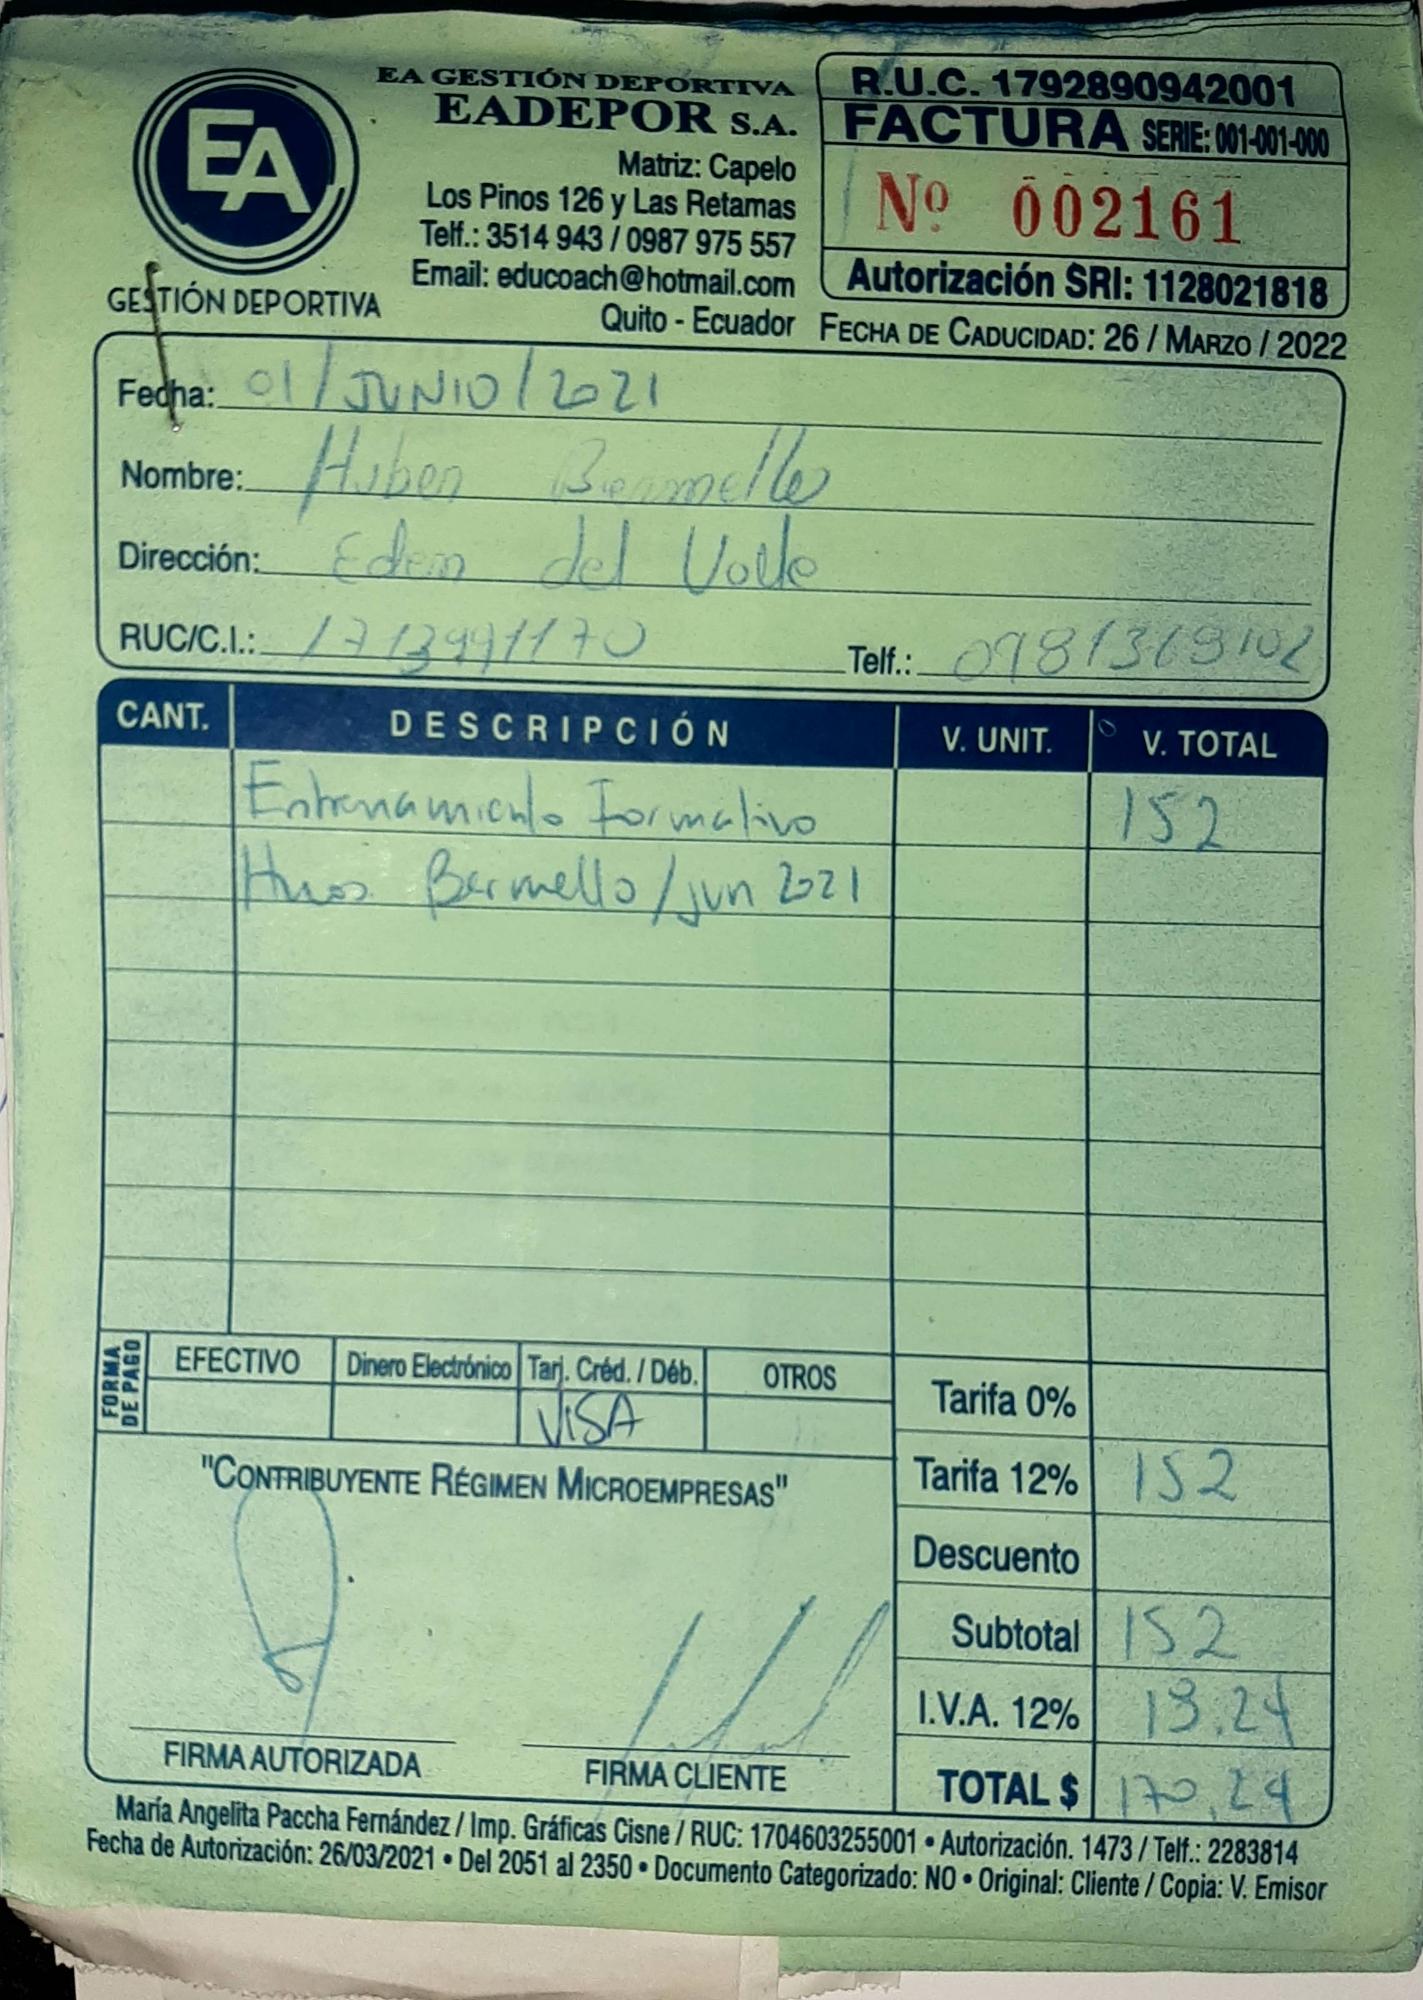 EA
GESTIÓN DEPORTIVA
EA GESTIÓN DEPORTIVA
EADEPOR S.A.
Matriz: Capelo
Los Pinos 126 y Las Retamas
Telf.: 3514 943 / 0987 975 557
Email: educoach@hotmail.com
Quito - Ecuador
R.U.C. 1792890942001
FACTURA SERIE: 001-001-000
Nº 002161
Autorización SRI: 1128021818
FECHA DE CADUCIDAD: 26 / MARZO / 2022
Fecha: 01/JUNIO/2021
Nombre: Huber Bermello
Dirección: Eden del Valle
RUC/C.I.: 1713991170 Telf.:
CANT. DESCRIPCIÓN V. UNIT. V. TOTAL
Entrenamiento Formativo 152
Hnos. Bermello/jun 2021
FORMA DE PAGO
EFECTIVO Dinero Electrónico Tarj. Créd. / Déb. OTROS
VISA
Tarifa 0%
Tarifa 12% 152
Descuento
Subtotal 152
I.V.A. 12%
TOTAL $ 170,24
"CONTRIBUYENTE RÉGIMEN MICROEMPRESAS"
FIRMA AUTORIZADA FIRMA CLIENTE
María Angelita Paccha Fernández / Imp. Gráficas Cisne / RUC: 1704603255001 • Autorización. 1473 / Telf.: 2283814
Fecha de Autorización: 26/03/2021 • Del 2051 al 2350 • Documento Categorizado: NO • Original: Cliente / Copia: V. Emisor